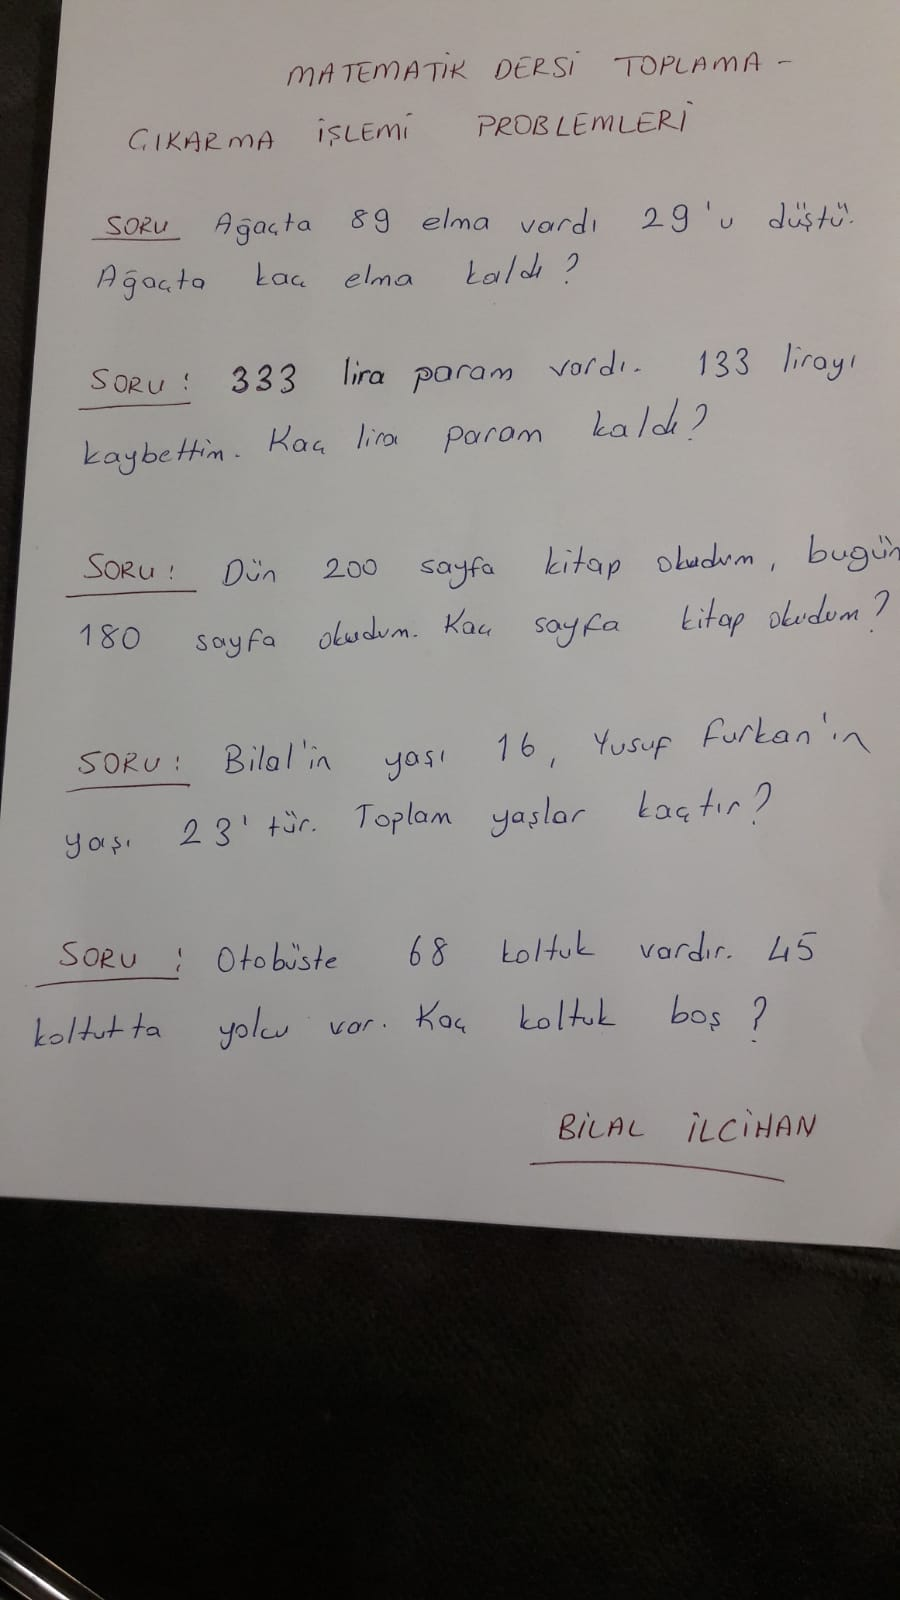 MATEMATİK DERSİ TOPLAMA -
ÇIKARMA İŞLEMİ PROBLEMLERİ
SORU Ağaçta 89 elma vardı 29'u düştü.
Ağaçta kaç elma kaldı?
SORU: 333 lira param vardı. 133 lirayı
kaybettim. Kaç lira param kaldı?
SORU: Dün 200 sayfa kitap okudum, bugün
180 sayfa okudum. Kaç sayfa kitap okudum?
SORU: Bilal'in yaşı 16, Yusuf Furkan'ın
yaşı 23'tür. Toplam yaşlar kaçtır?
SORU: Otobüste 68 koltuk vardır. 45
koltukta yolcu var. Kaç koltuk boş?
BİLAL İLCİHAN